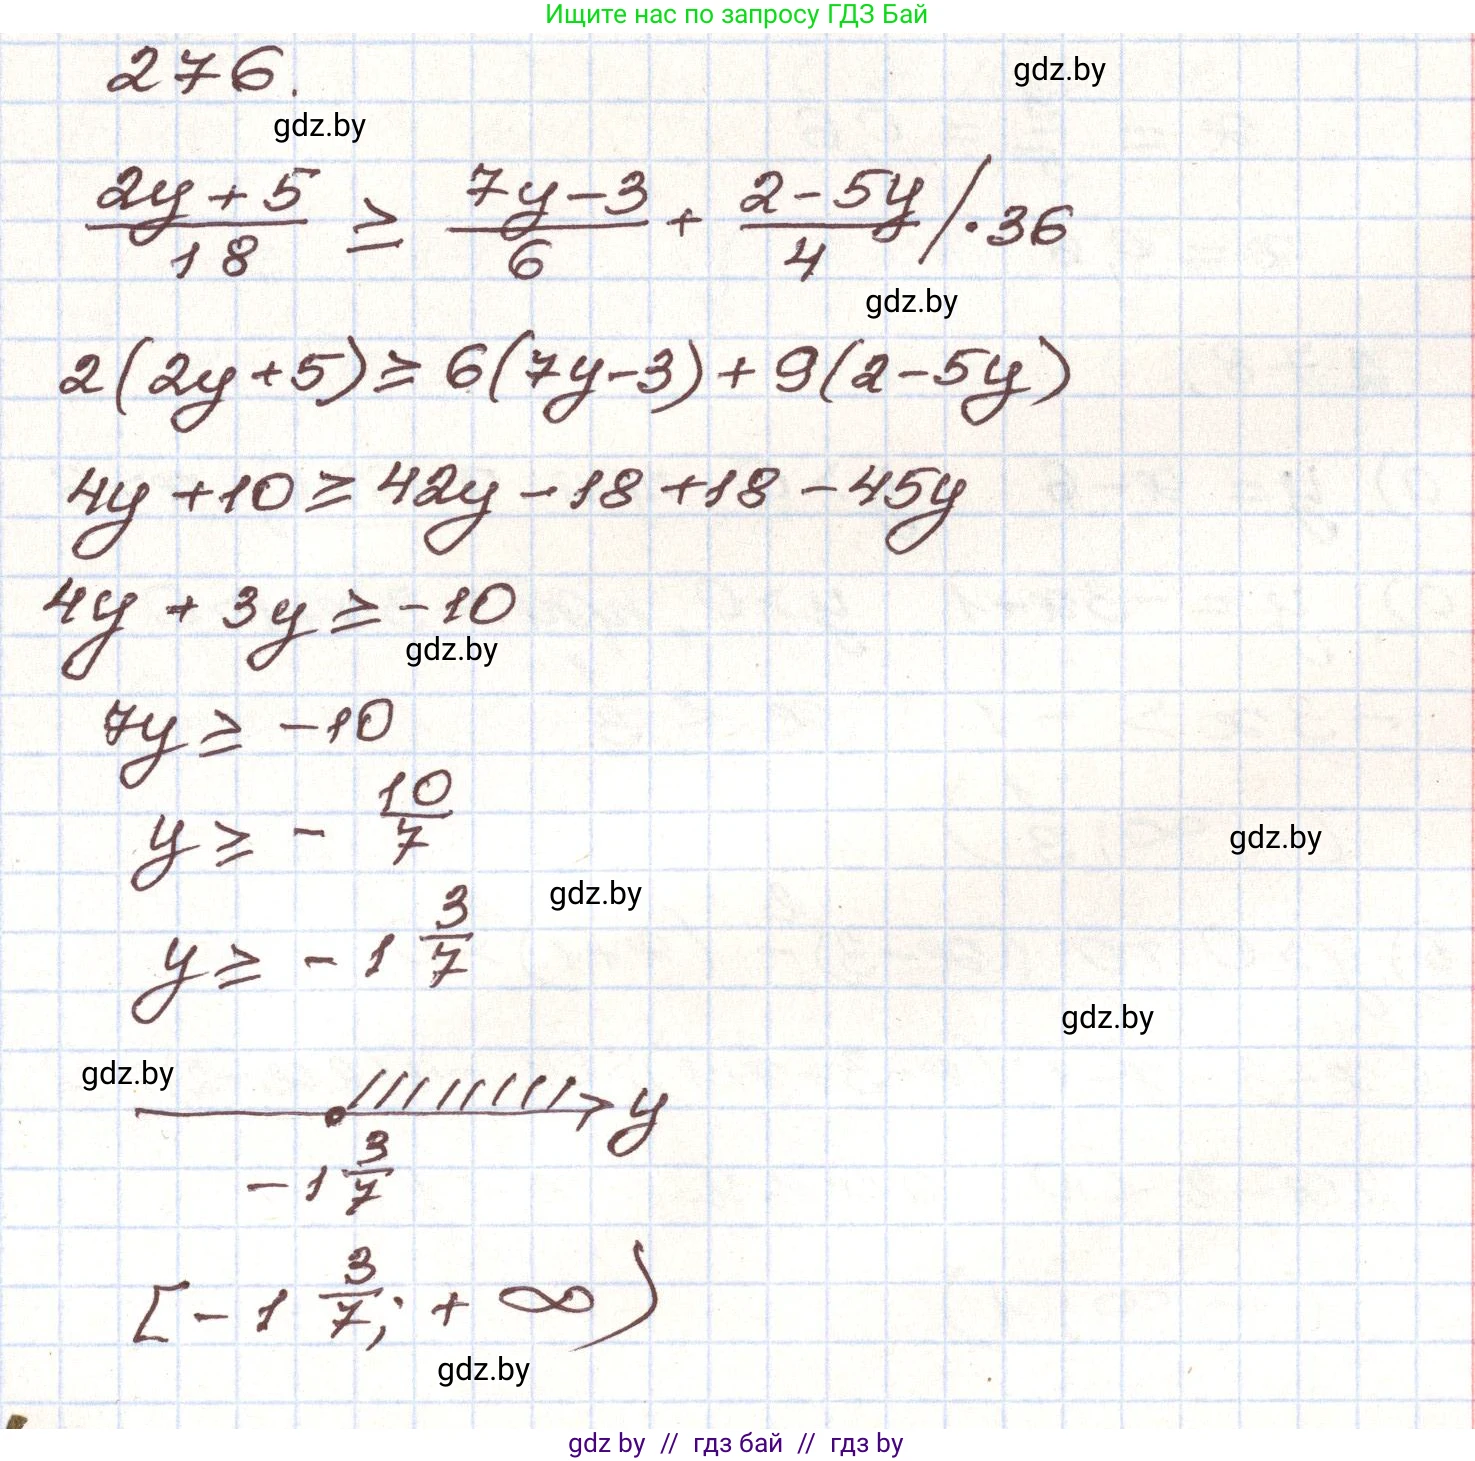 Ищите нас по запросу ГДЗ Бай
276.
gdz.by
gdz.by
(2y + 5)/18 ≥ (7y - 3)/6 + (2 - 5y)/4 /·36
gdz.by
2(2y+5) ≥ 6(7y-3) + 9(2-5y)
4y + 10 ≥ 42y - 18 + 18 - 45y
4y + 3y ≥ -10
gdz.by
7y ≥ -10
y ≥ - 10/7
gdz.by
gdz.by
y ≥ - 1 3/7
gdz.by
gdz.by
y
- 1 3/7
[- 1 3/7; + ∞)
gdz.by
gdz by // гдз бай // гдз by